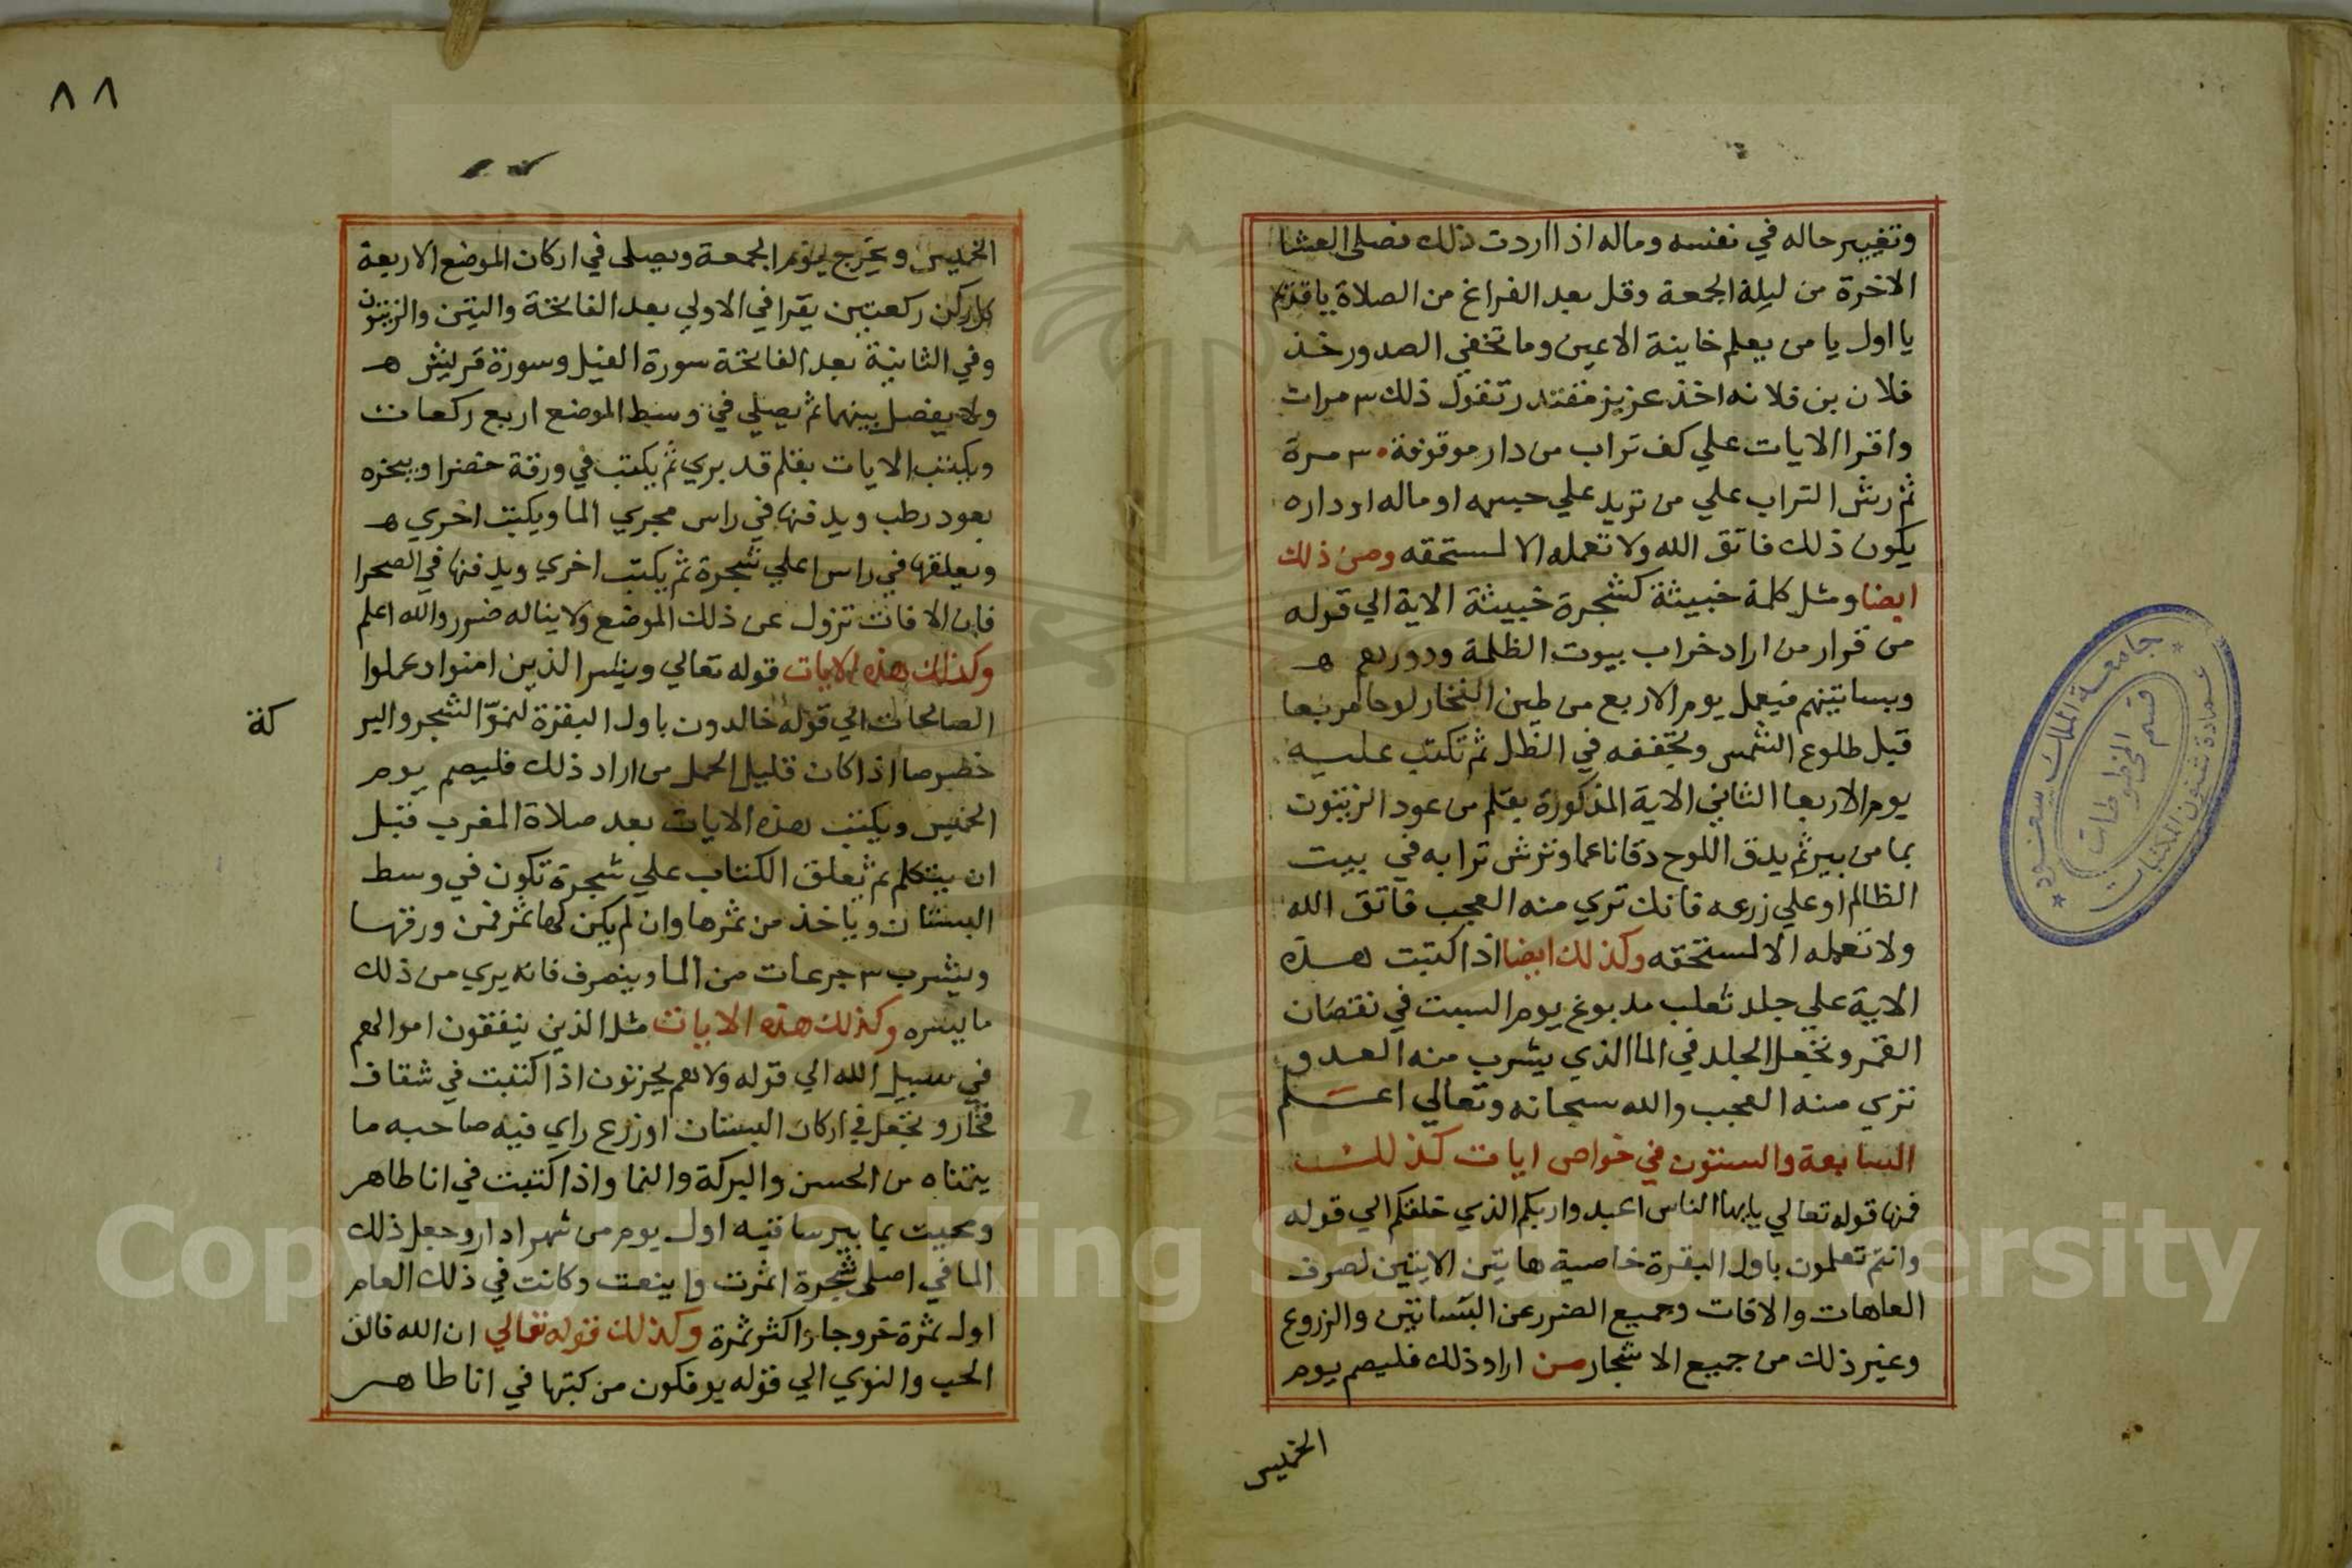 وتغيير حاله في نفسه وماله اذا اردت ذلك فصلي العشا
الاخرة من ليلة الجمعة وقل بعد الفراغ من الصلاة يا قديم
يا اول يا من يعلم خاينة الاعين وما تخفي الصدور خذ
فلان بن فلانه اخذ عزيز مقتدر تقول ذلك ٣ مرات
واقرا الايات علي كف تراب من دار موقوفة ٣٠ مرة
ثم رش التراب علي من تريد علي جسمه او ماله او داره
يكون ذلك فاتق الله ولا تعمله الا لمستحقه ومن ذلك
ايضا ومثل كلمة خبيثة كشجرة خبيثة الاية الي قوله
من قرار من اراد خراب بيوت الظلمة ودورهم ه
وبساتينهم فيعمل يوم الاربع من طين الفخار لوحا مربعا
قبل طلوع الشمس ويجففه في الظل ثم تكتب عليه
يوم الاربعا الثاني الاية المذكورة بقلم من عود الزيتون
بما من بير ثم يدق اللوح دقا ناعما وترش ترابه في بيت
الظالم او علي زرعه فانك تري منه العجب فاتق الله
ولا تعمله الا لمستحقه وكذلك ايضا اذا كتبت هذه
الاية علي جلد ثعلب مدبوغ يوم السبت في نقصان
القمر وتجعل الجلد في الما الذي يشرب منه العدو
تري منه العجب والله سبحانه وتعالي اعلم
السابعة والستون في خواص ايات كذلك
فمنها قوله تعالي يايها الناس اعبدوا ربكم الذي خلقكم الي قوله
وانتم تعلمون باول البقرة خاصية هاتين الايتين لصرف
العاهات والافات وجميع الضرر عن البساتين والزروع
وغير ذلك من جميع الاشجار من اراد ذلك فليصم يوم
الخميس
جامعة الملك سعود
عمادة شئون المكتبات
قسم المخطوطات
٨٨
الخميس ويخرج يوم الجمعة ويصلي في اركان الموضع الاربعة
كل ركن ركعتين يقرا في الاولي بعد الفاتحة والتين والزيتون
وفي الثانية بعد الفاتحة سورة الفيل وسورة قريش ه
ولا يفصل بينهما ثم يصلي في وسط الموضع اربع ركعات
ويكتب الايات بقلم قد بري ثم يكتب في ورقة خضرا ويبخره
بعود رطب ويدفنها في راس مجري الما ويكتب اخري ه
ويعلقها في راس اعلي شجرة ثم يكتب اخري ويدفنها في الصحرا
فان الافات تزول عن ذلك الموضع ولا يناله ضرر والله اعلم
وكذلك هذه الايات قوله تعالي وبشر الذين امنوا وعملوا
الصالحات الي قوله خالدون باول البقرة لنموّ الشجر والبر
كة
خصوصا اذا كان قليل الحمل من اراد ذلك فليصم يوم
الخميس ويكتب هذه الايات بعد صلاة المغرب قبل
ان يتكلم ثم يعلق الكتاب علي شجرة تكون في وسط
البستان وياخذ من ثمرها وان لم يكن لها ثمر فمن ورقها
ويشرب ٣ جرعات من الما وينصرف فانه يري من ذلك
ما يسره وكذلك هذه الايات مثل الذين ينفقون اموالهم
في سبيل الله الي قوله ولا هم يحزنون اذا كتبت في شقاف
فخار وتجعل في اركان البستان او زرع راي فيه صاحبه ما
يتمناه من الحسن والبركة والنما واذا كتبت في انا طاهر
ومحيت بما بير ساقيه اول يوم من شهر ادار وجعل ذلك
الما في اصل شجرة اثمرت واينعت وكانت في ذلك العام
اول ثمرة خروجا واكثر ثمرة وكذلك قوله تعالي ان الله فالق
الحب والنوي الي قوله يوفكون من كتبها في انا طاهر
Copyright © King Saud University
1957